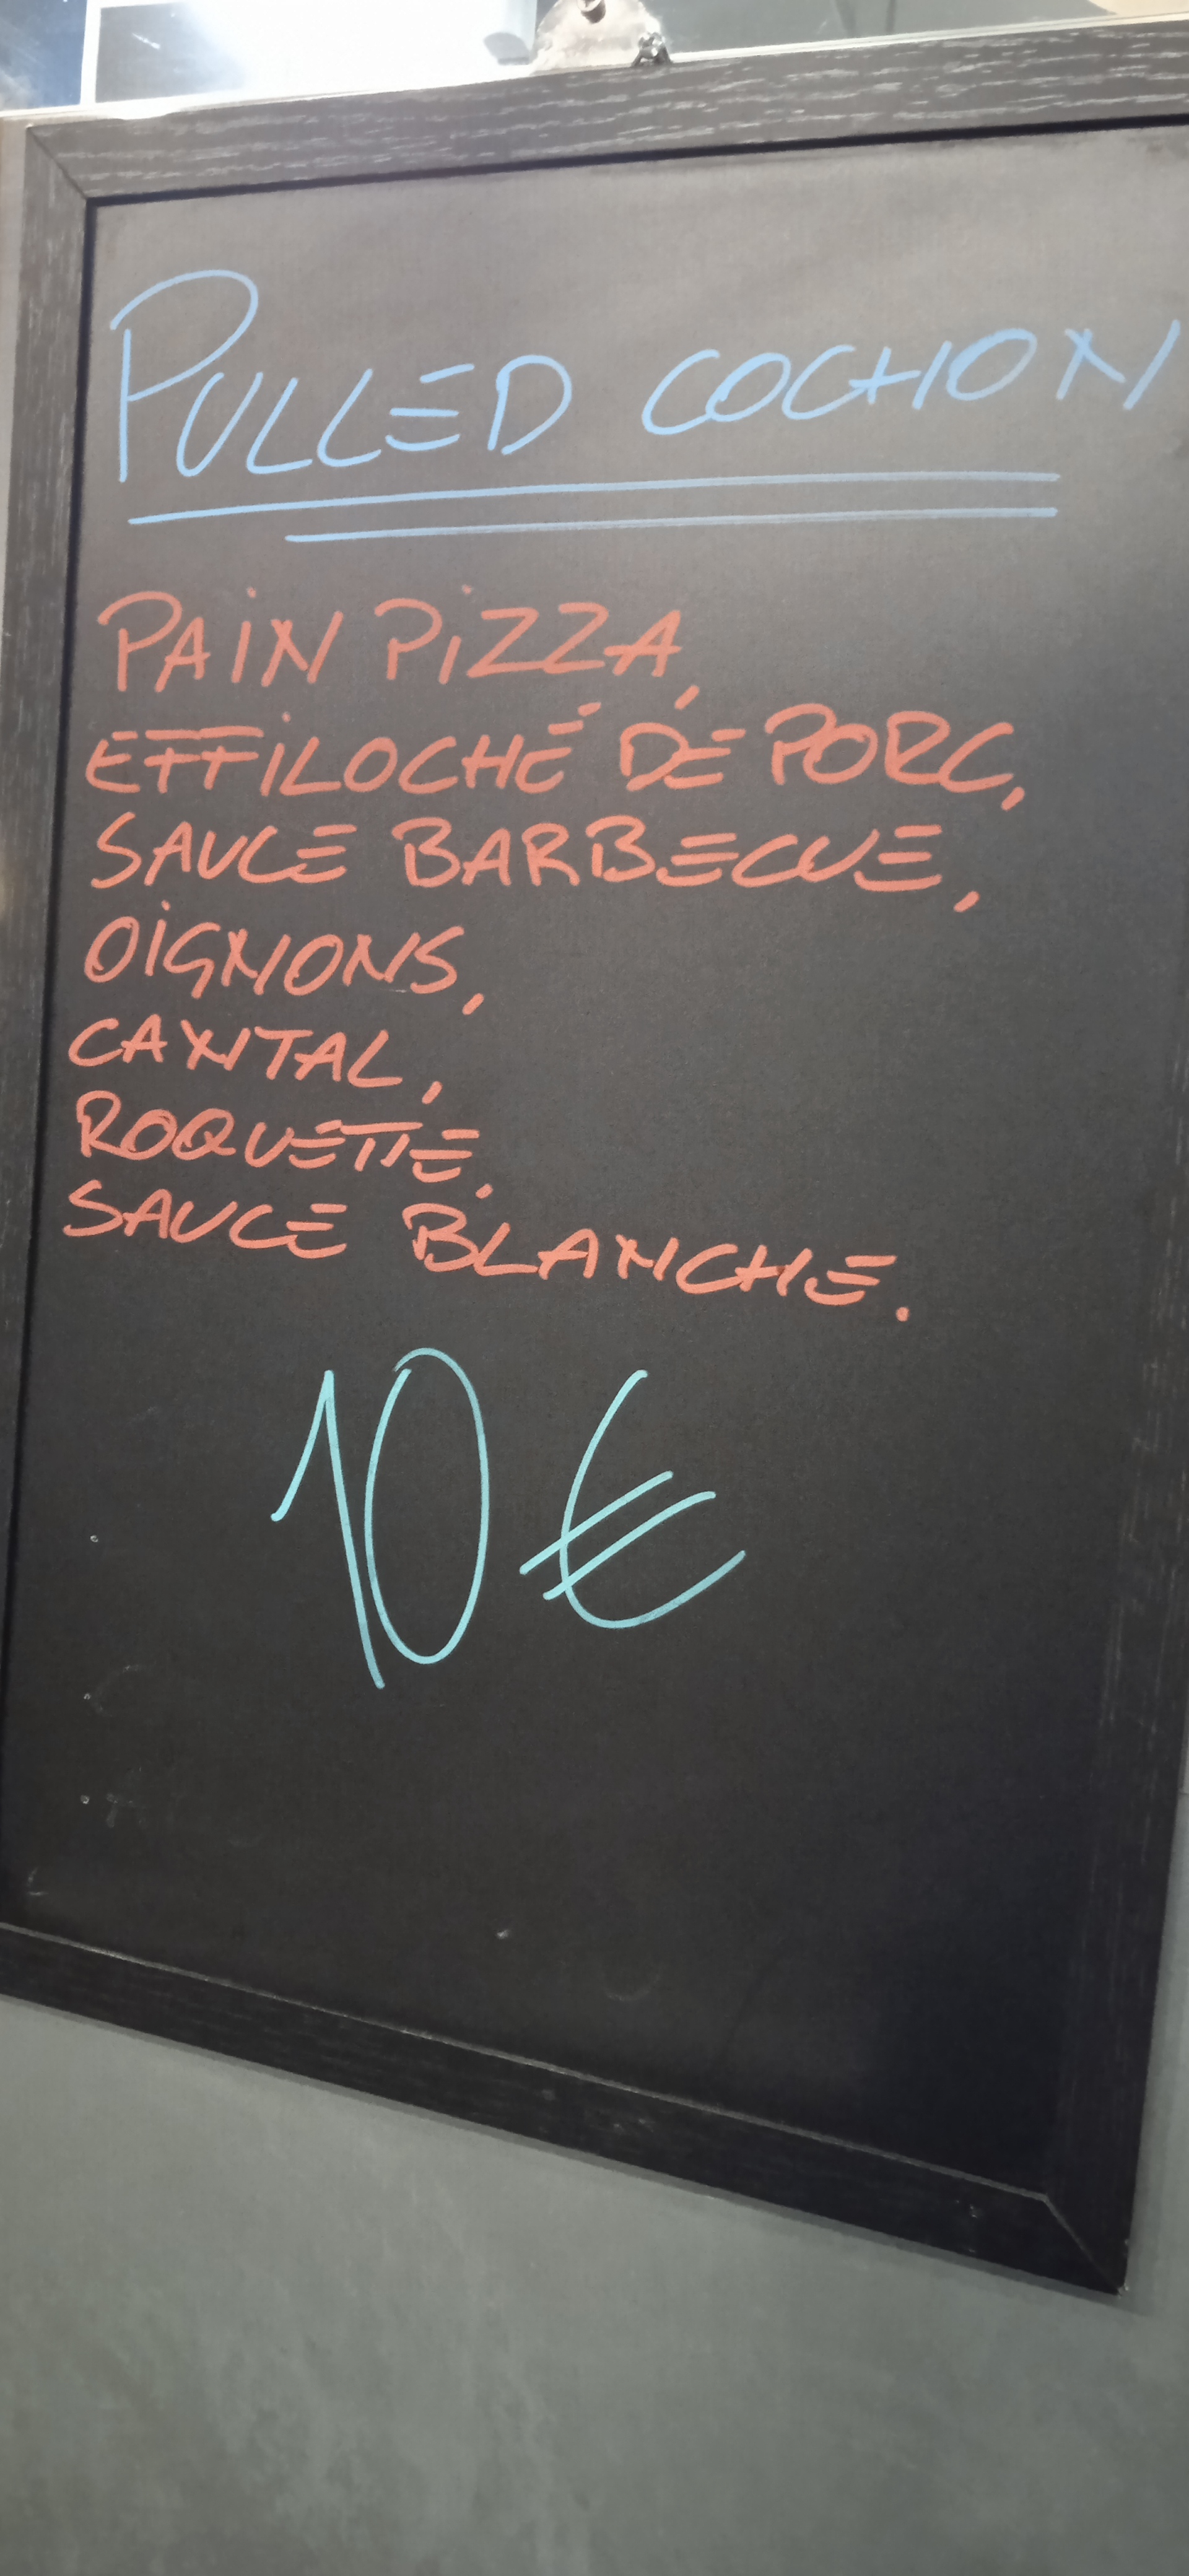 PULLED COCHON
PAiN PiZZA,
EFFiLOCHÉ DE PORC,
SAUCE BARBECUE,
OiGNONS,
CANTAL,
ROQUETTE,
SAUCE BLANCHE.
10 €